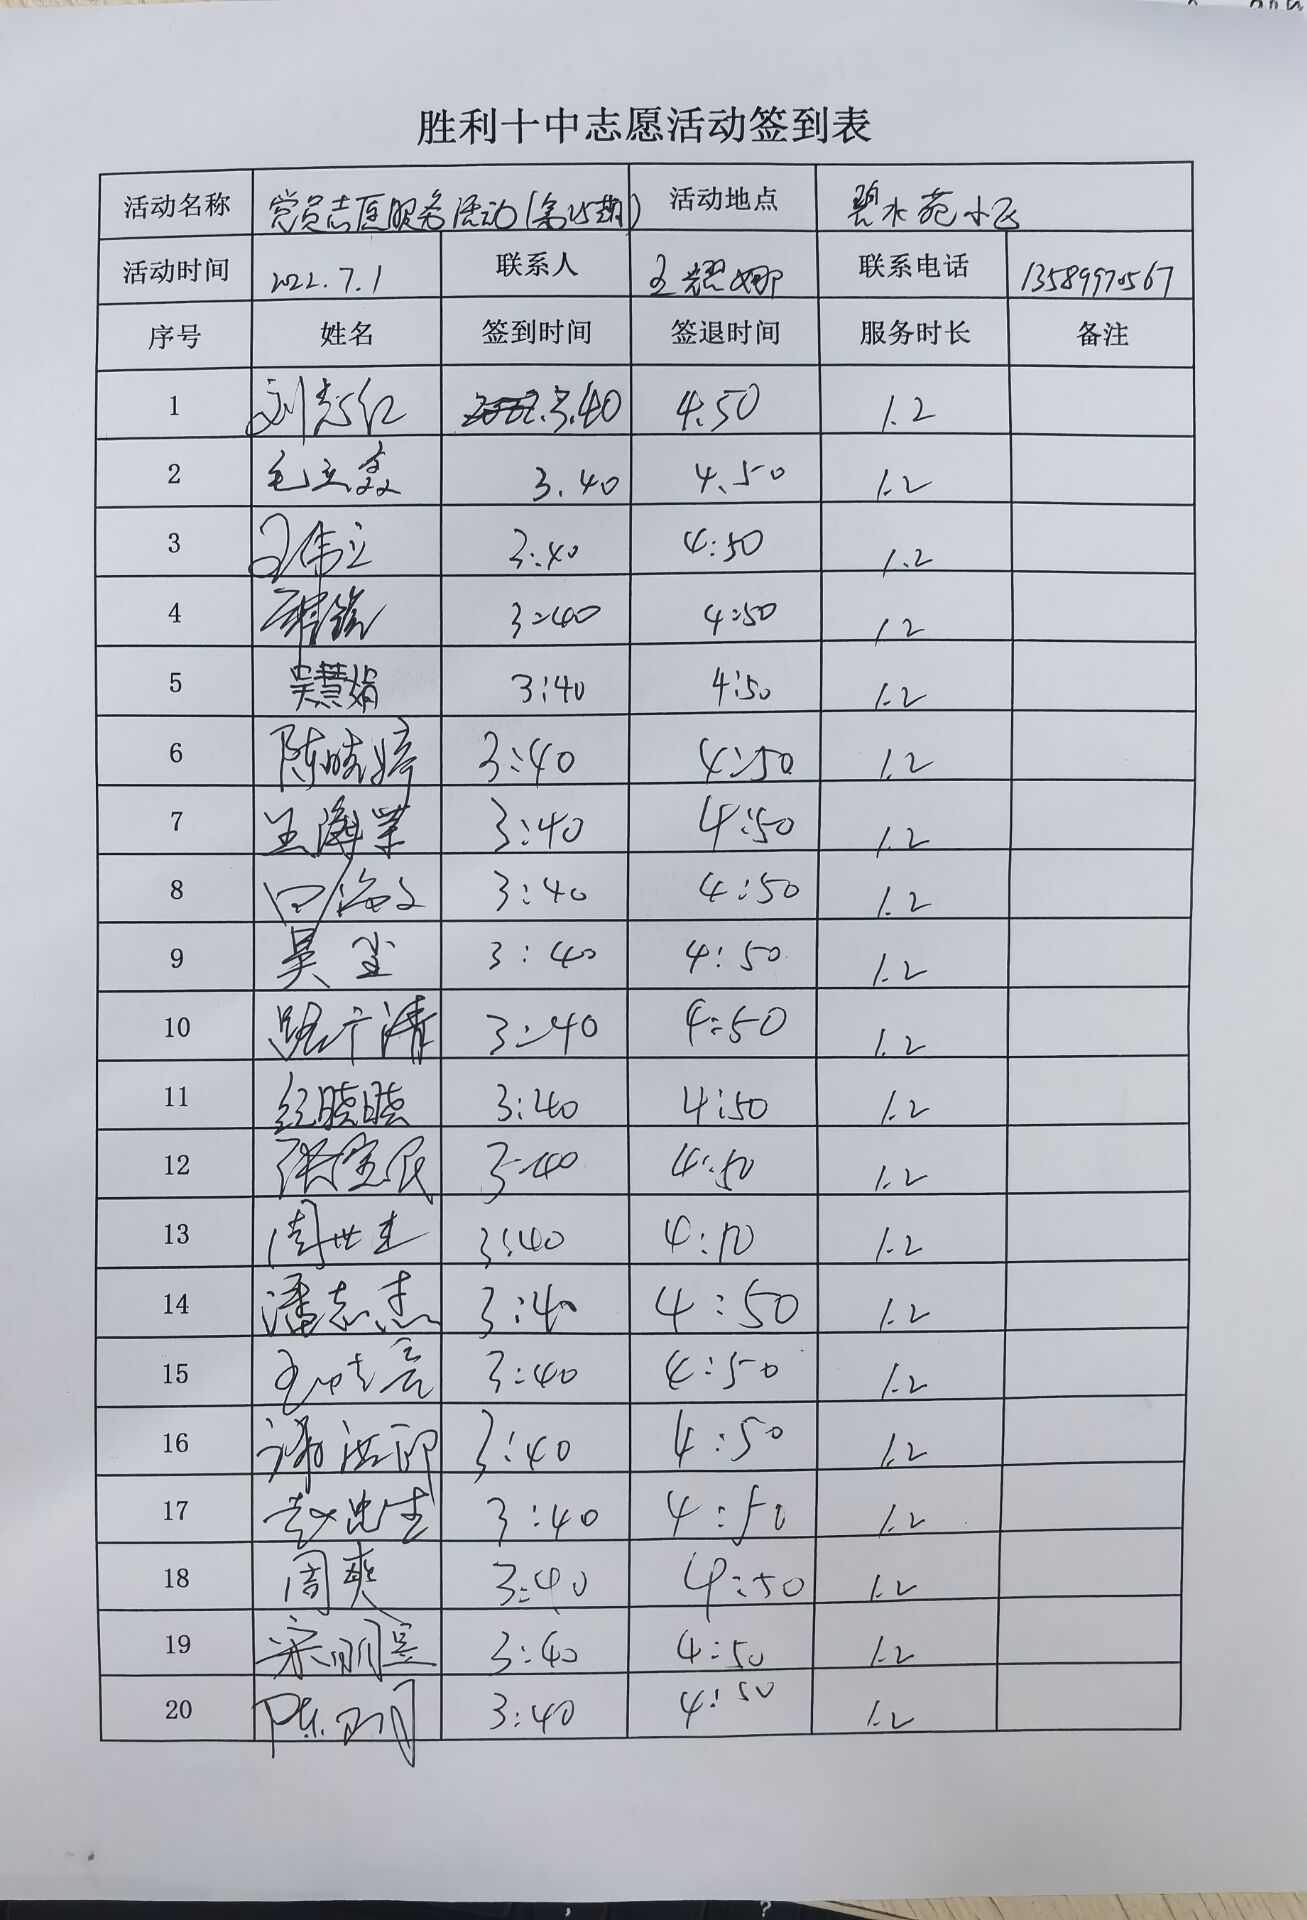 胜利十中志愿活动签到表
活动名称 党员志愿服务活动(第15期) 活动地点 碧水苑小区
活动时间 2022.7.1 联系人 王耀娜 联系电话 13589970567
序号 姓名 签到时间 签退时间 服务时长 备注
1 刘志红 3.40 4.50 1.2
2 毛立磊 3.40 4.50 1.2
3 王伟立 3:40 4:50 1.2
4 3:40 4:50 1.2
5 吴慧娟 3:40 4:50 1.2
6 陈晓婷 3:40 4:50 1.2
7 王海荣 3:40 4:50 1.2
8 3:40 4:50 1.2
9 吴莹 3:40 4:50 1.2
10 路广清 3:40 4:50 1.2
11 纪晓晓 3:40 4:50 1.2
12 张宝民 3:40 4:50 1.2
13 周世建 3:40 4:10 1.2
14 潘志杰 3:40 4:50 1.2
15 王晓亮 3:40 4:50 1.2
16 3:40 4:50 1.2
17 赵忠生 3:40 4:50 1.2
18 周爽 3:40 4:50 1.2
19 宋丽 3:40 4:50 1.2
20 陈 3:40 4:50 1.2